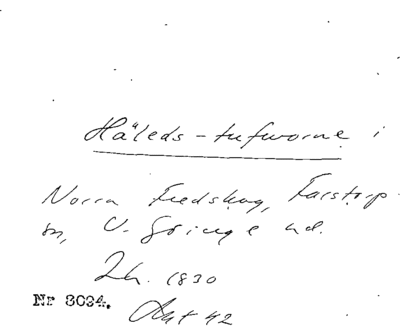 Häleds-tufworne i
Norra Fredskog, Farstorp
sn, V. Göinge hd.
Lh. 1830
Nr 3034. Akt 42